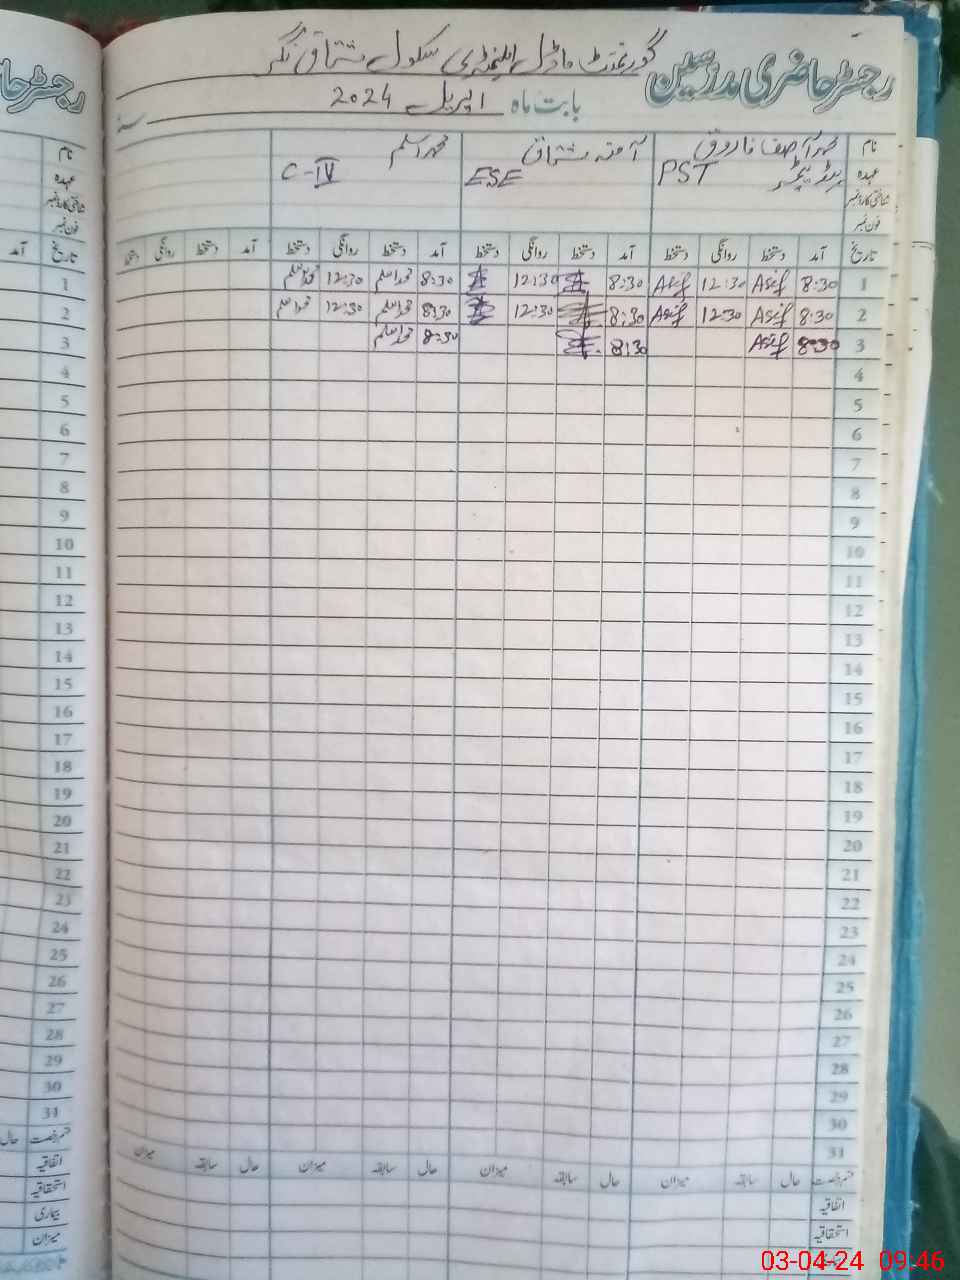 رجسٹر حاضری مدرسین گورنمنٹ ماڈل ایلیمنٹری سکول مشتاق نگر
بابت ماہ اپریل 2024 سنہ
نام محمد آصف فاروق آمنہ مشتاق محمد اسلم
عہدہ ہیڈ ٹیچر PST ESE C-IV
شناختی کارڈ نمبر
فون نمبر
تاریخ آمد دستخط روانگی دستخط آمد دستخط روانگی دستخط آمد دستخط روانگی دستخط آمد دستخط روانگی دستخط
1 8:30 Asif 12:30 Asif 8:30 12:30 8:30 محمد اسلم 12:30 محمد اسلم
2 8:30 Asif 12:30 Asif 8:30 12:30 8:30 محمد اسلم 12:30 محمد اسلم
3 8:30 Asif 8:30 8:30 محمد اسلم
4
5
6
7
8
9
10
11
12
13
14
15
16
17
18
19
20
21
22
23
24
25
26
27
28
29
30
31
قسم رخصت حال سابقہ میزان حال سابقہ میزان حال سابقہ میزان حال سابقہ میزان
اتفاقیہ
استحقاقیہ
رجسٹر حا
نام
عہدہ
شناختی کارڈ نمبر
فون نمبر
تاریخ آمد
1
2
3
4
5
6
7
8
9
10
11
12
13
14
15
16
17
18
19
20
21
22
23
24
25
26
27
28
29
30
31
قسم رخصت حال
اتفاقیہ
استحقاقیہ
بیماری
میزان
03-04-24 09:46